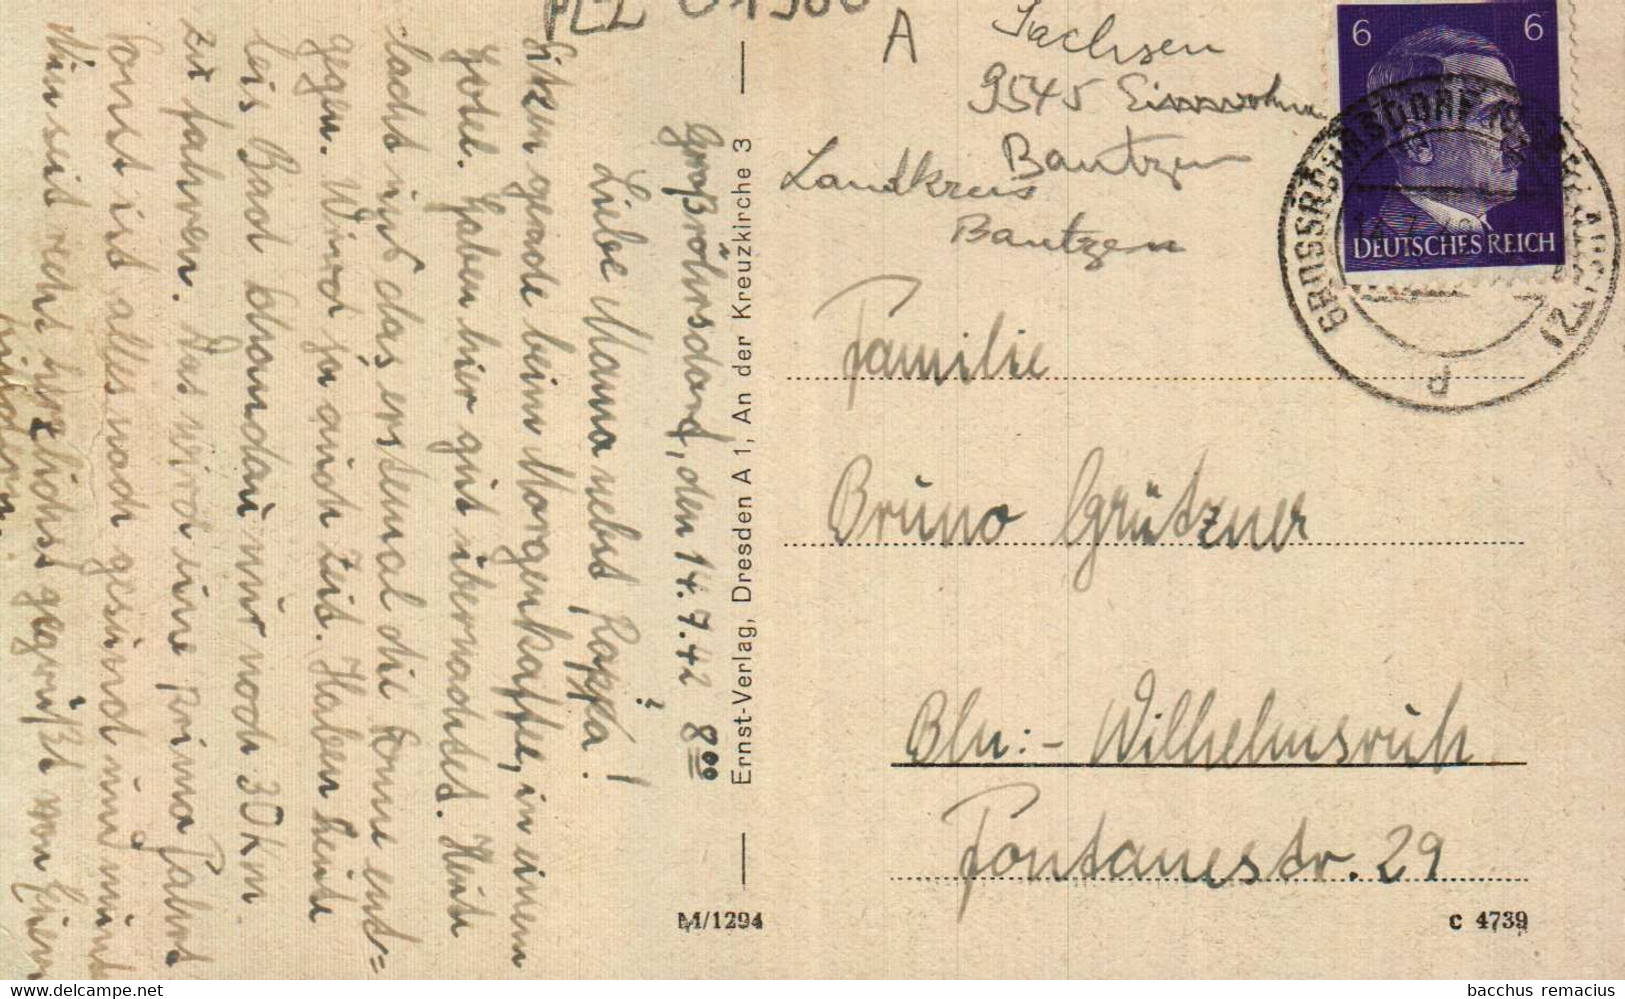 PLZ 01900
A
Sachsen
9545 Einwohner
Bautzen
Landkreis
Bautzen
6 6
DEUTSCHES REICH
d
Großröhrsdorf, den 14.7.42 8⁰⁰
Liebe Mama nebst Pappa!
Sitzen gerade beim Morgenkaffee, in einem
Hotel. Haben hier gut übernachtet. Heute
lacht uns das erstemal die Sonne ent=
gegen. Wird ja auch Zeit. Haben heute
bis Bad Schandau nur noch 30 Km.
zu fahren. Das wird eine prima Fahrt
Sonst ist alles noch gesund und munt
Nun seit recht herzlichst gegrüßt von Euren
Kindern.
Ernst-Verlag, Dresden A 1, An der Kreuzkirche 3
Familie
Bruno Grützner
Bln:- Wilhelmsruh
Fontanestr. 29
M/1294
C 4739
www.delcampe.net
bacchus remacius